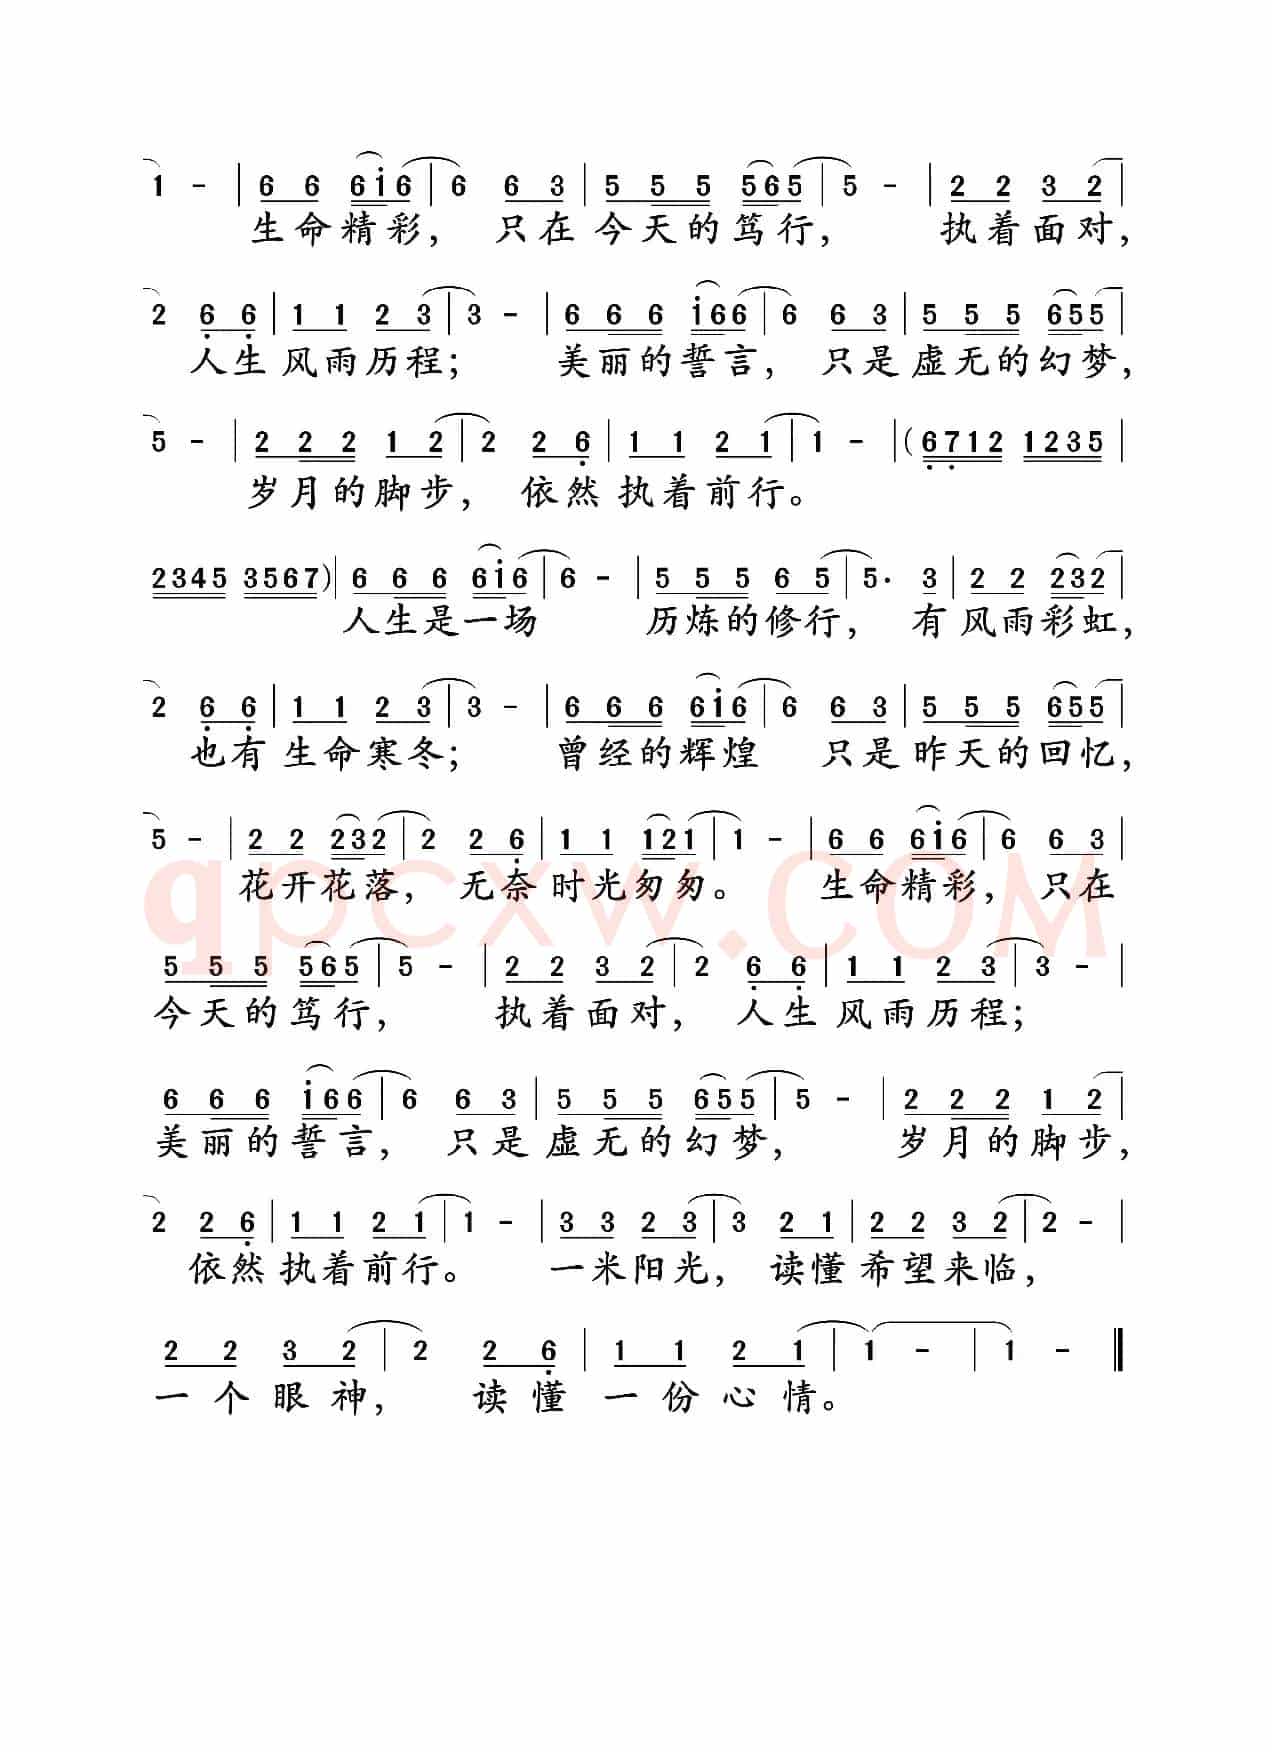 1 - | 6 6 6i6 | 6 6 3 | 5 5 5 565 | 5 - | 2 2 3 2 |
生命精彩， 只在今天的笃行， 执着面对，
2 6 6 | 1 1 2 3 | 3 - | 6 6 6 i66 | 6 6 3 | 5 5 5 655 |
人生风雨历程； 美丽的誓言， 只是虚无的幻梦，
5 - | 2 2 2 1 2 | 2 2 6 | 1 1 2 1 | 1 - | (6712 1235 |
岁月的脚步， 依然执着前行。
2345 3567) | 6 6 6 6i6 | 6 - | 5 5 5 6 5 | 5· 3 | 2 2 232 |
人生是一场 历炼的修行， 有风雨彩虹，
2 6 6 | 1 1 2 3 | 3 - | 6 6 6 6i6 | 6 6 3 | 5 5 5 655 |
也有生命寒冬； 曾经的辉煌 只是昨天的回忆，
5 - | 2 2 232 | 2 2 6 | 1 1 121 | 1 - | 6 6 6i6 | 6 6 3 |
花开花落， 无奈时光匆匆。 生命精彩， 只在
qpcxw.COM
5 5 5 565 | 5 - | 2 2 3 2 | 2 6 6 | 1 1 2 3 | 3 - |
今天的笃行， 执着面对， 人生风雨历程；
6 6 6 i66 | 6 6 3 | 5 5 5 655 | 5 - | 2 2 2 1 2 |
美丽的誓言， 只是虚无的幻梦， 岁月的脚步，
2 2 6 | 1 1 2 1 | 1 - | 3 3 2 3 | 3 2 1 | 2 2 3 2 | 2 - |
依然执着前行。 一米阳光， 读懂希望来临，
2 2 3 2 | 2 2 6 | 1 1 2 1 | 1 - | 1 - ‖
一个眼神， 读懂一份心情。